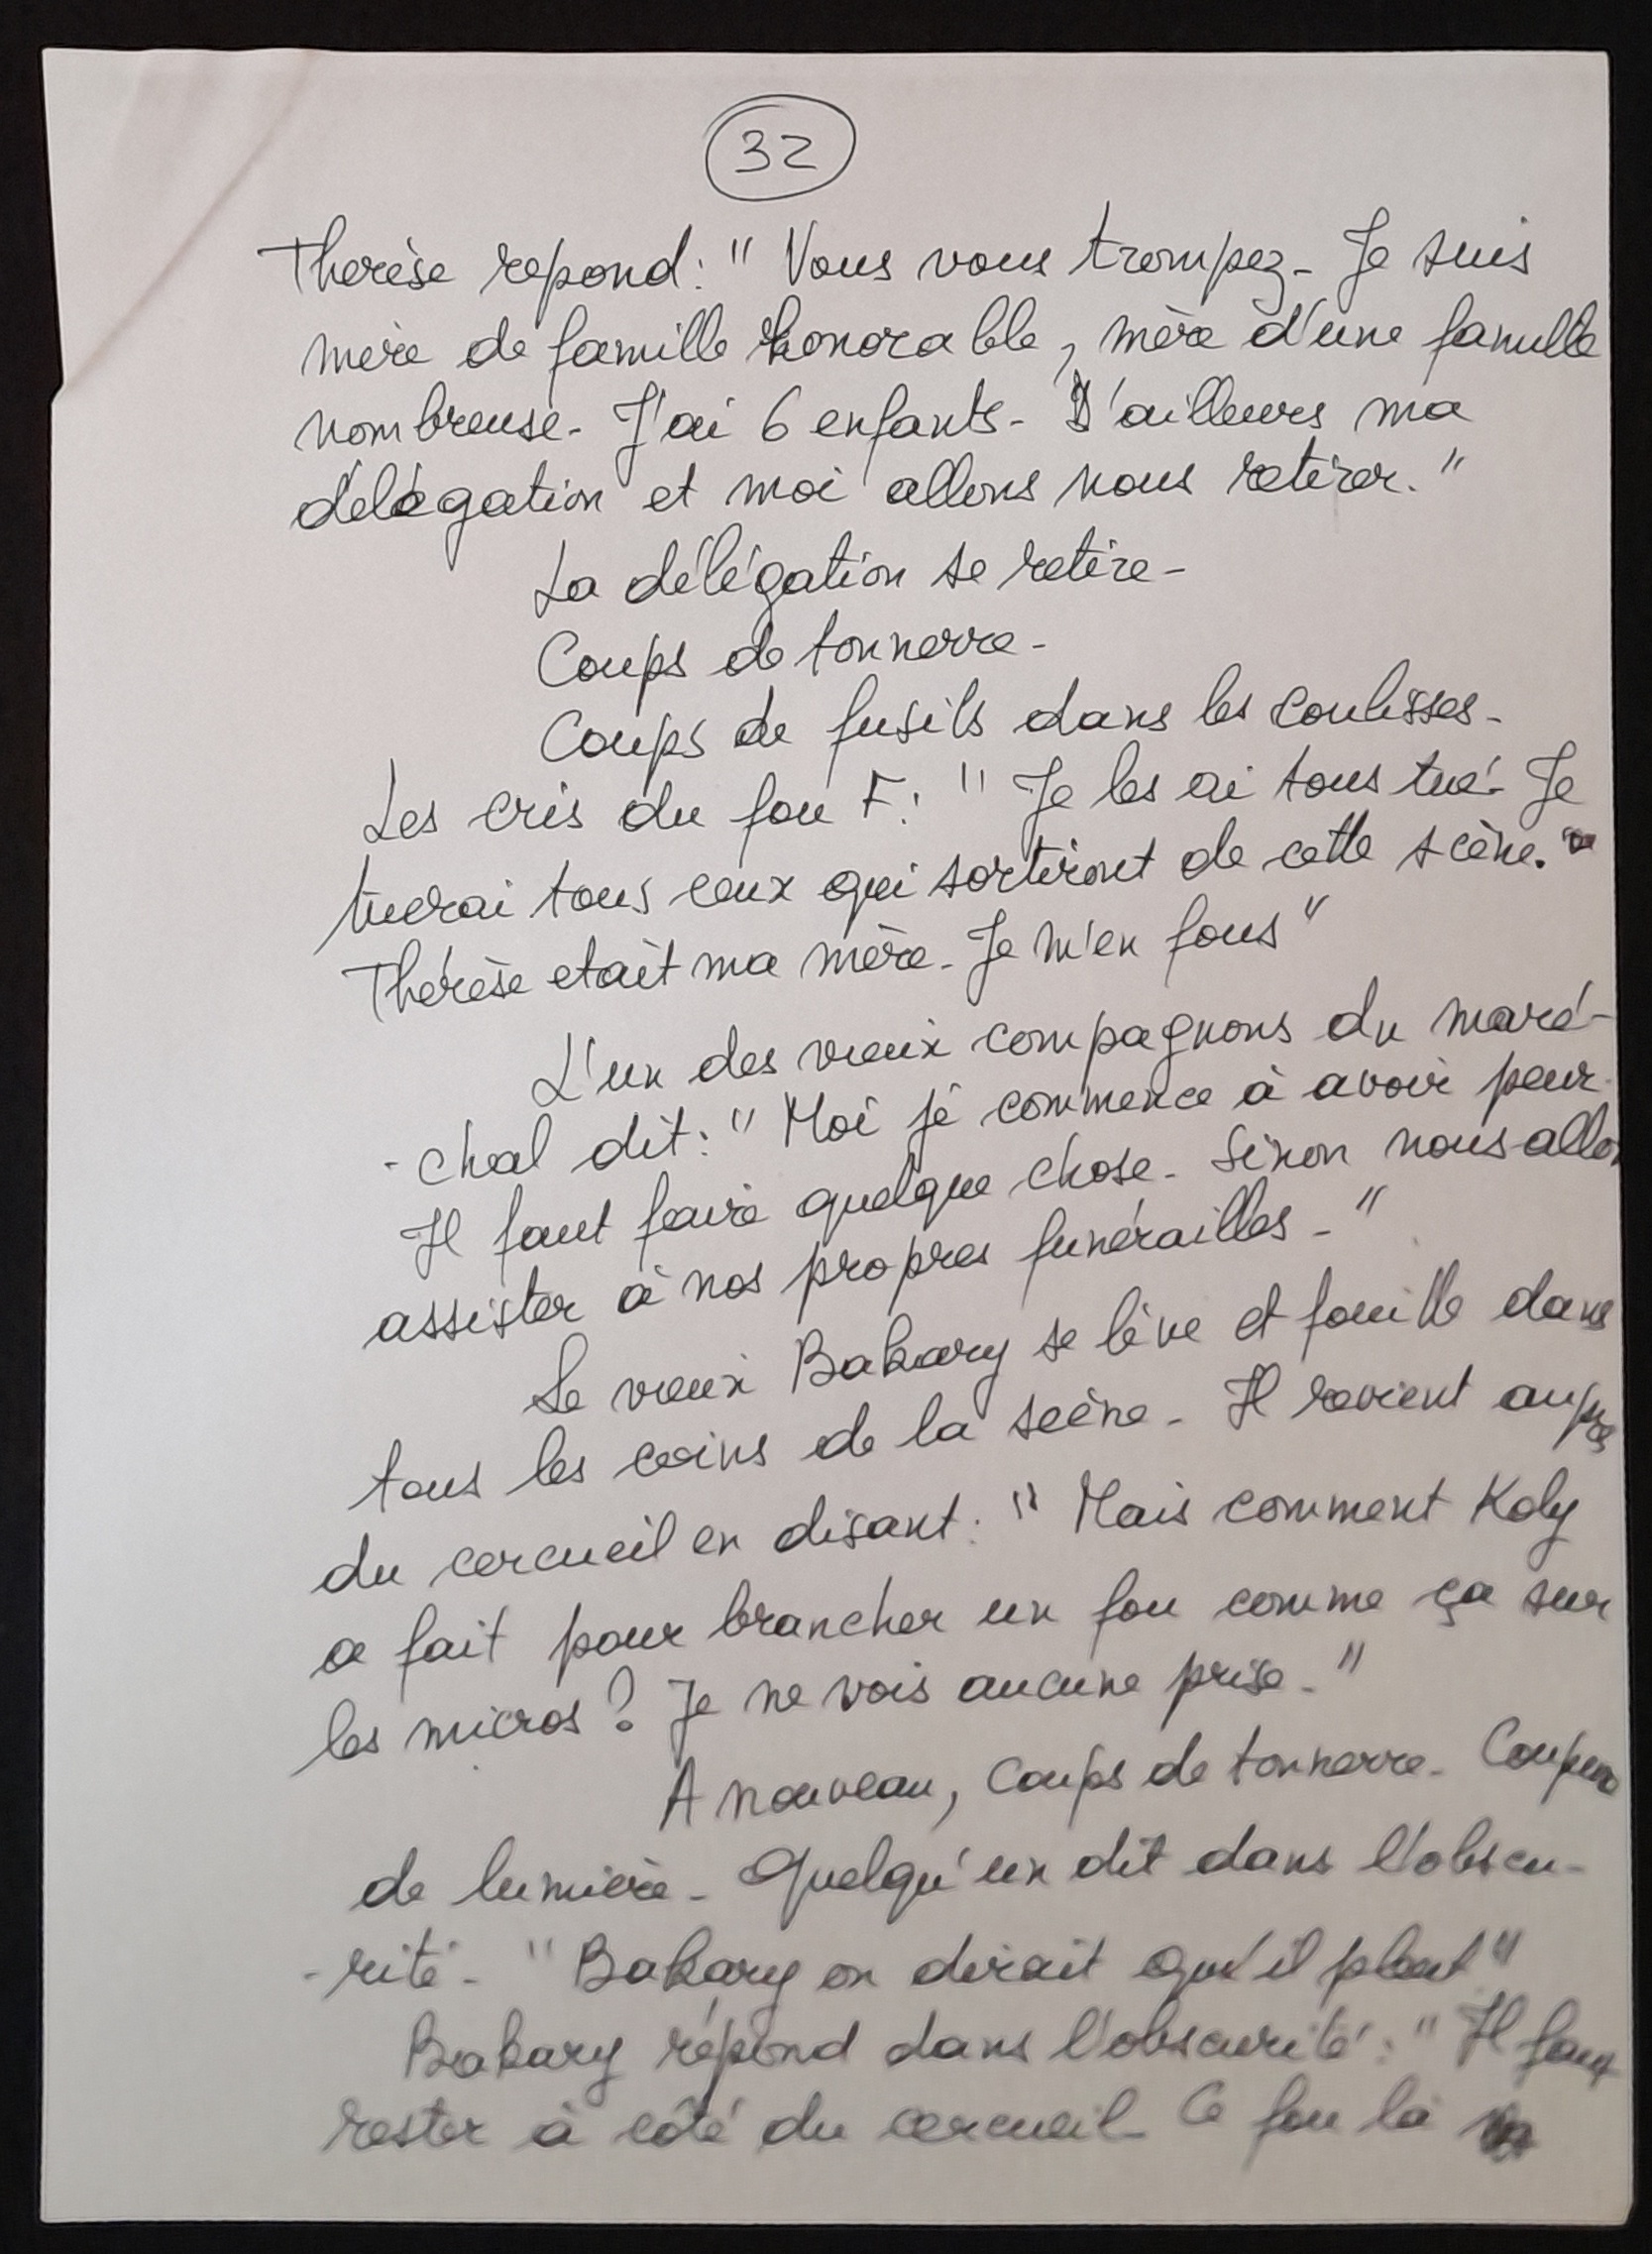 32
Therèse repond: " Vous vous trompez - Je suis
mère de famille honorable, mère d'une famille
nombreuse - J'ai 6 enfants - D'ailleurs ma
délégation et moi allons nous retirer. "
La délégation se retire -
Coups de tonnerre -
Coups de fusils dans les coulisses -
Les cris du fou F: " Je les ai tous tué - Je
tuerai tous ceux qui sortiront de cette scène. "
Thérèse etait ma mère - Je m'en fous "
L'un des vieux compagnons du maré-
- chal dit: " Moi je commence à avoir peur
Il faut faire quelque chose - Sinon nous allon
assister à nos propres funérailles - "
Le vieux Bakary se lève et fouille dans
tous les coins de la scène - Il revient
du cercueil en disant: " Mais comment Koly
a fait pour brancher un fou comme ça sur
les micros ? Je ne vois aucune prise - "
A nouveau, Coups de tonnerre -
de lumière - Quelqu'un dit dans l'obscu-
- rité - " Bakary on dirait qu'il pleut "
Bakary répond dans l'obscurité: " Il faut
rester à côté du cercueil - Ce fou là